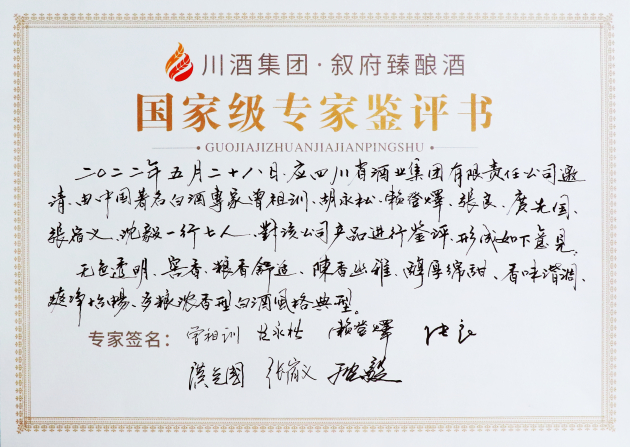 川酒集团·叙府臻酿酒
国家级专家鉴评书
GUOJIAJIZHUANJIAJIANPINGSHU
二〇二二年五月二十八日,应四川省酒业集团有限责任公司邀
请,由中国著名白酒專家曾祖训、胡永松、赖登燡、張良、庹先国、
張宿义、沈毅一行七人,對該公司产品进行鉴评,形成如下意見:
无色透明、窖香、粮香舒适、陳香幽雅、醇厚绵甜、香味谐调、
爽净怡暢、多粮浓香型白酒风格典型。
专家签名: 曾祖训 胡永松 赖登燡 张良
庹先國 张宿义 沈毅